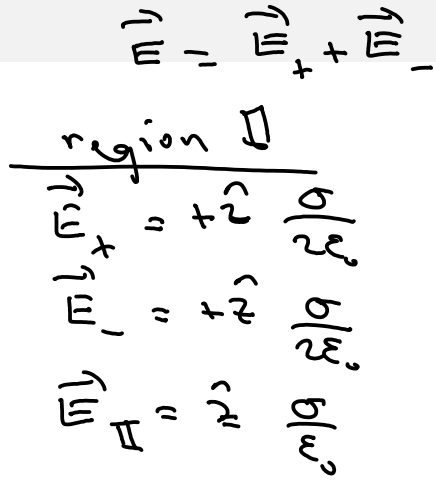 E⃗ = E⃗₊ + E⃗₋
region II
E⃗₊ = +ẑ σ/2ε₀
E⃗₋ = +ẑ σ/2ε₀
E⃗_II = ẑ σ/ε₀